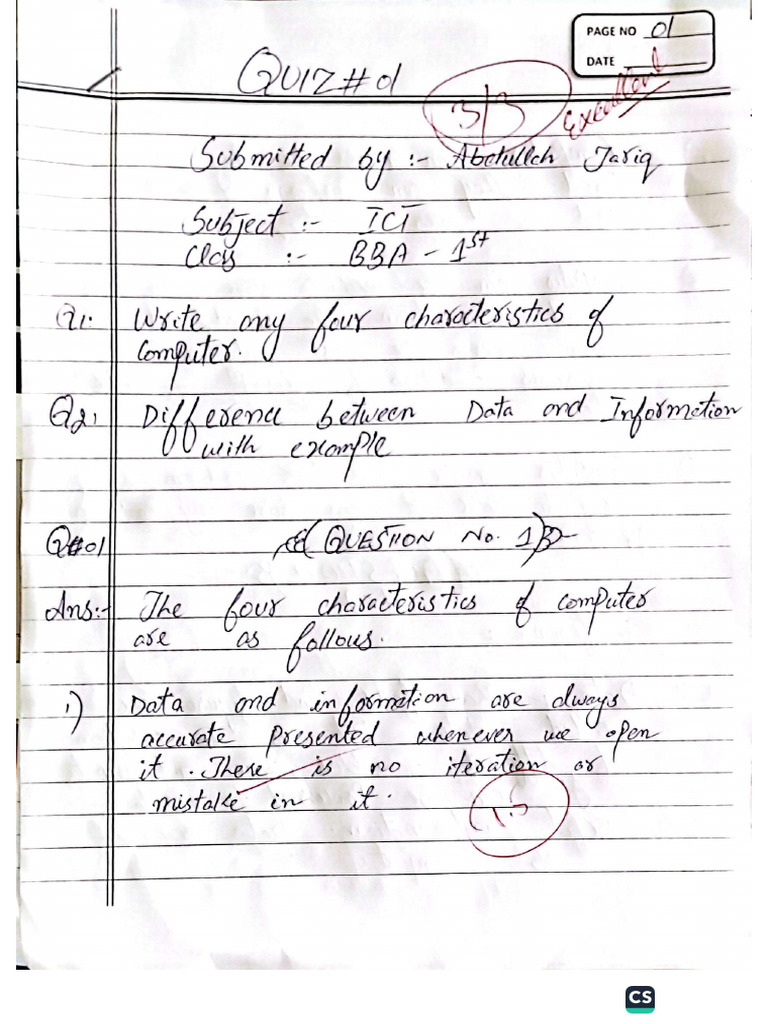 PAGE NO 01
DATE
QUIZ # 01
3/3
Excellent
Submitted by :- Abdullah Tariq
Subject :- ICT
Class :- BBA - 1st
Q1: Write any four characteristics of
computer.
Q2: Difference between Data and Information
with example
Q#01 (QUESTION No. 1)
Ans:- The four characteristics of computer
are as follows.
1) Data and information are always
accurate presented whenever we open
it. There is no iteration or
mistake in it.
1.5
CS